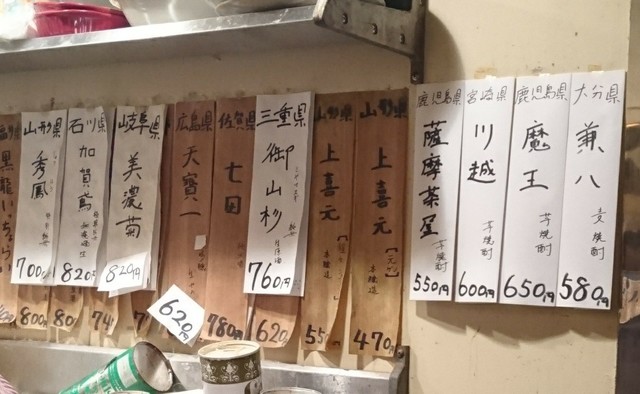 大分県
兼八
麦焼酎
580円
鹿児島県
魔王
芋焼酎
650円
宮崎県
川越
芋焼酎
600円
鹿児島県
薩摩茶屋
芋焼酎
550円
山形県
上喜元
本醸造
470円
山形県
上喜元
本醸造
三重県
御山杉
760円
620
佐賀県
七田
780円
広島県
天寶一
620円
岐阜県
美濃菊
820円
石川県
加賀鳶
820円
山形県
秀鳳
700円
800円
黒龍いっちょらい